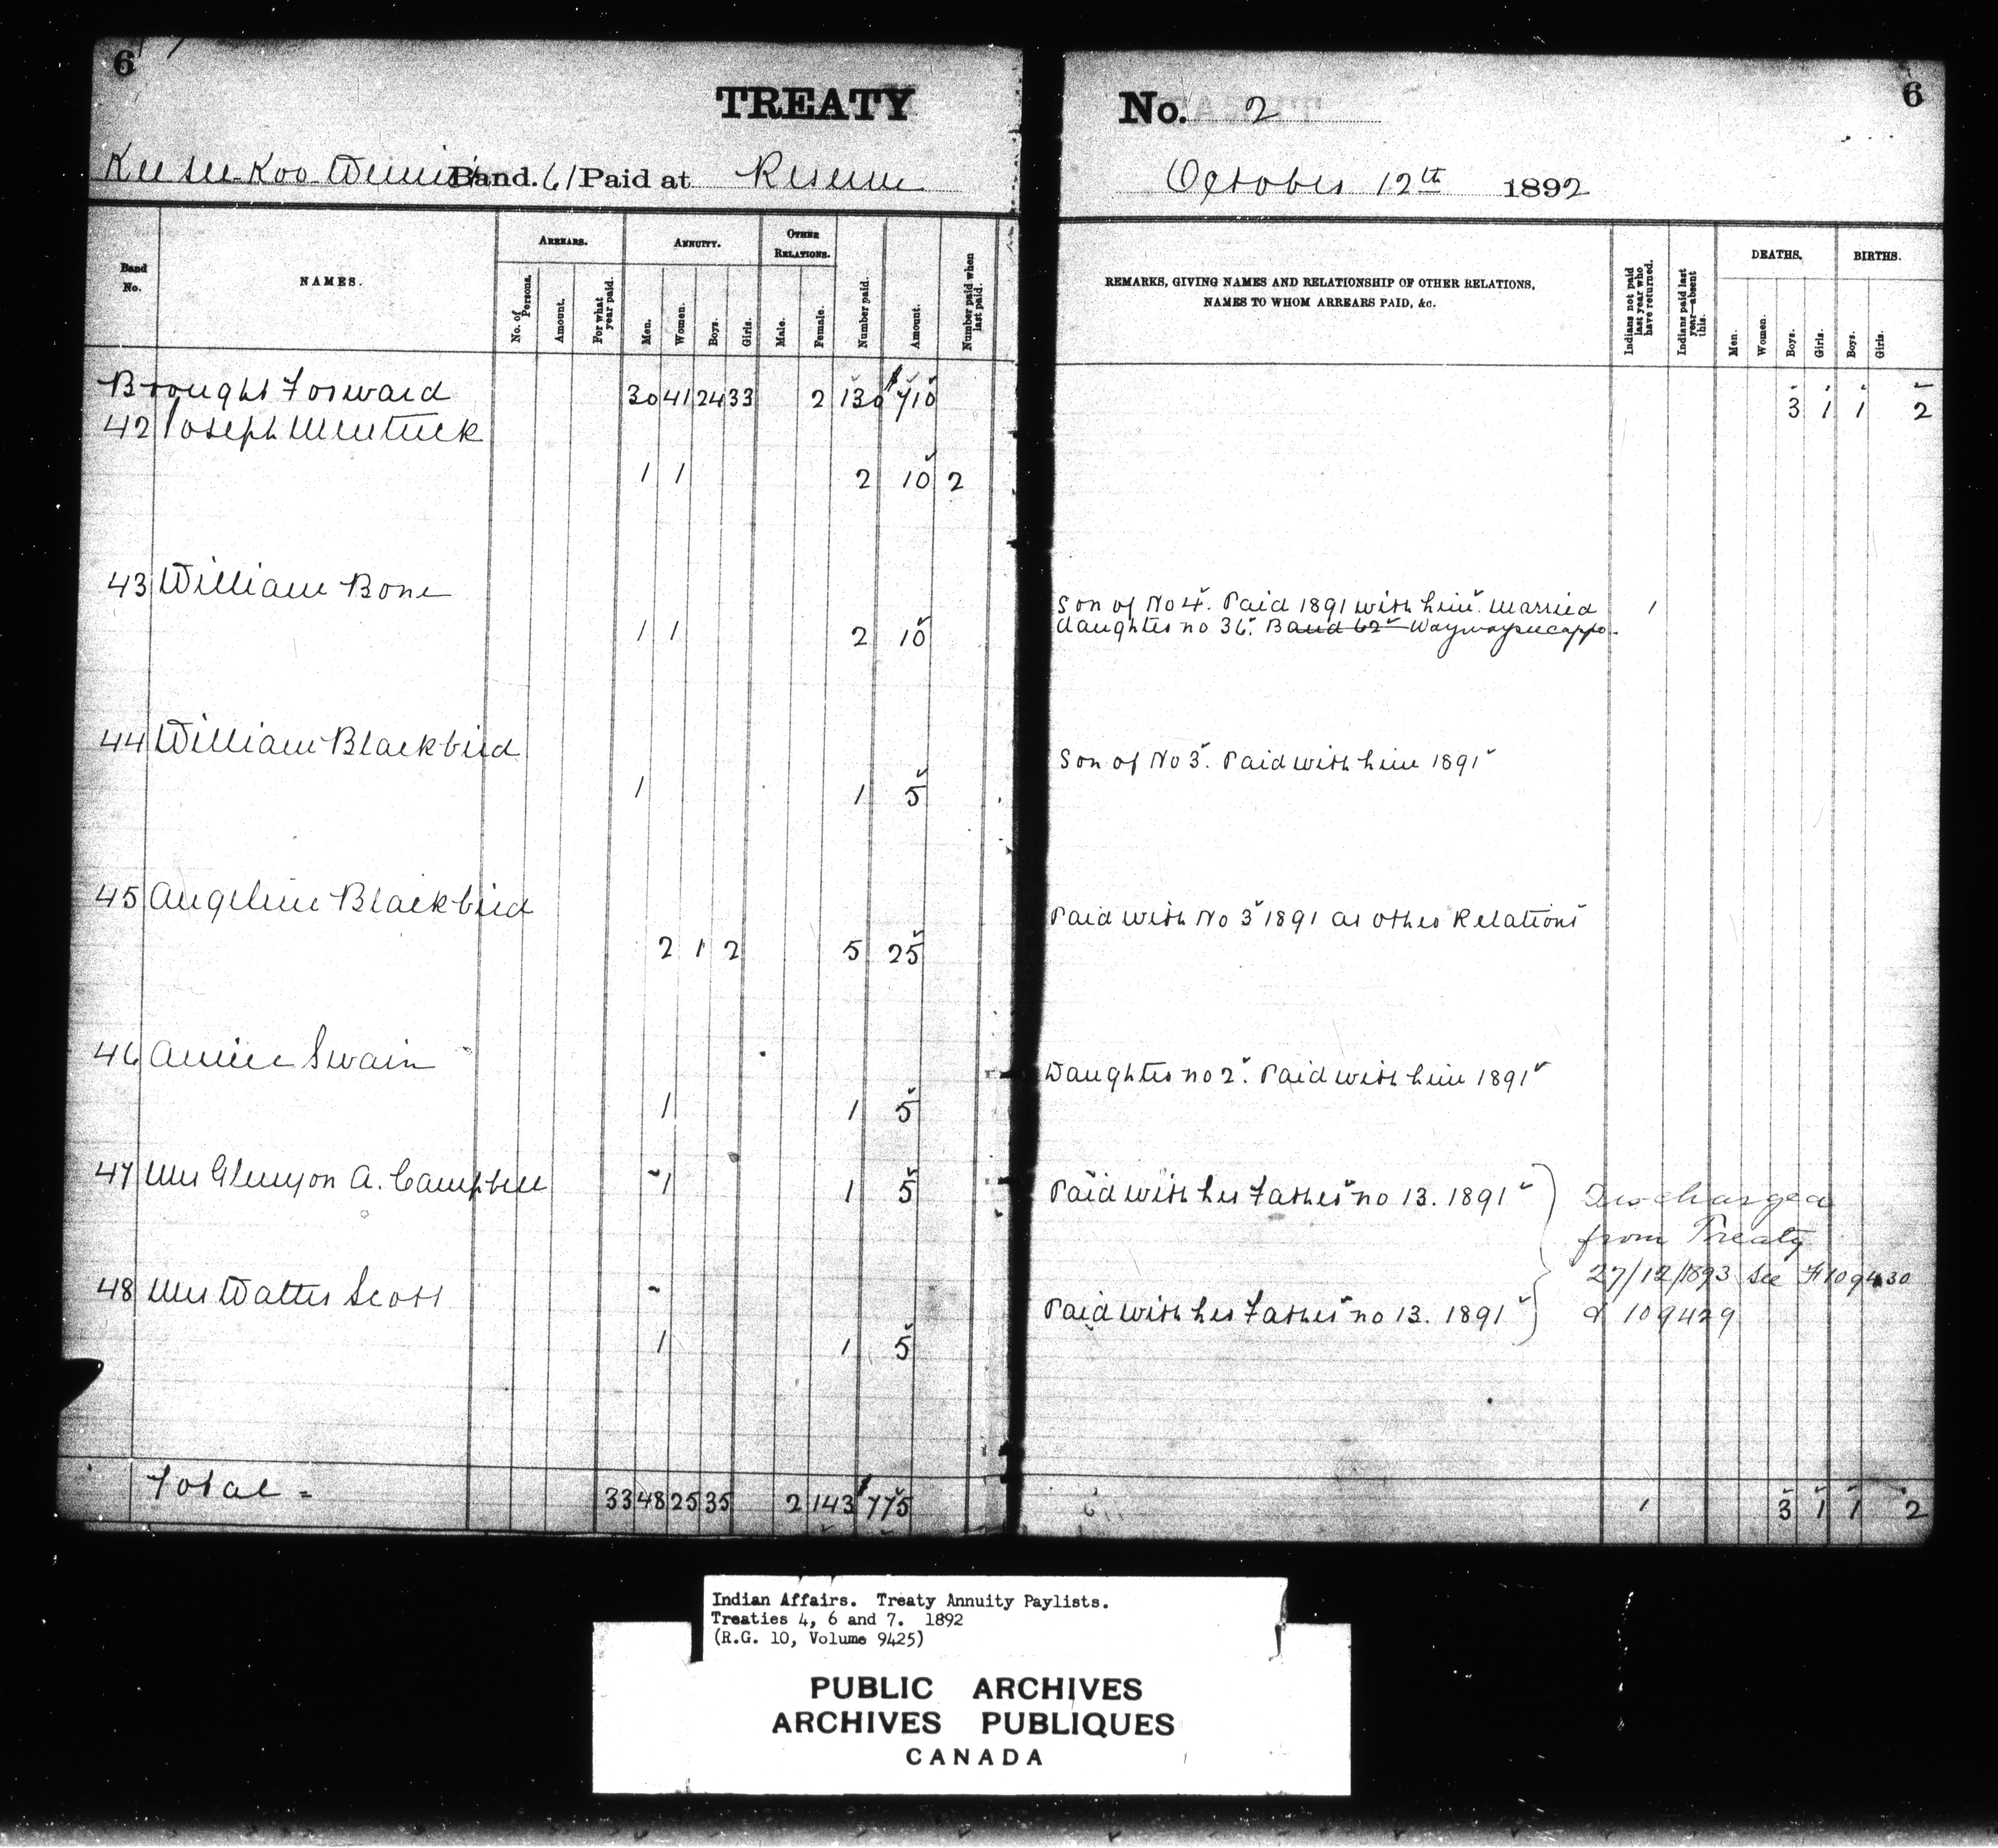 6
6
TREATY No. 2
Kee see Koo Wenin's Band. 61 Paid at Reserve October 12th 1892
Band No.
NAMES.
ARREARS.
No. of Persons.
Amount.
For what year paid.
ANNUITY.
Men.
Women.
Boys.
Girls.
OTHER RELATIONS.
Male.
Female.
Number paid.
Amount.
Number paid when last paid.
REMARKS, GIVING NAMES AND RELATIONSHIP OF OTHER RELATIONS,
NAMES TO WHOM ARREARS PAID, &c.
Indians not paid last year who have returned.
Indians paid last year—absent this.
DEATHS.
Men.
Women.
Boys.
Girls.
BIRTHS.
Boys.
Girls
Brought Forward 30 41 24 33 2 130 $710 3 1 1 2
42 Joseph Mentuck
1 1 2 10 2
43 William Bone
Son of No 4. Paid 1891 with him. Married 1
daughter no 36. Band 62 Waywayseecappo.
1 1 2 10
44 William Blackbird
Son of No 3. Paid with him 1891
1 1 5
45 Angeline Blackbird
Paid with No 3 1891 as other Relations
2 1 2 5 25
46 Annie Swain
Daughter no 2. Paid with him 1891
1 1 5
47 Mrs Glenyon A. Campbell 1 1 5 Paid with her Father no 13. 1891
Discharged
from Treaty
27/12/1893 See F 109430
& 109429
48 Mrs Walter Scott
Paid with her Father no 13. 1891
1 1 5
Total = 33 48 25 35 2 143 $775 1 3 1 1 2
Indian Affairs. Treaty Annuity Paylists.
Treaties 4, 6 and 7. 1892
(R.G. 10, Volume 9425)
PUBLIC ARCHIVES
ARCHIVES PUBLIQUES
CANADA